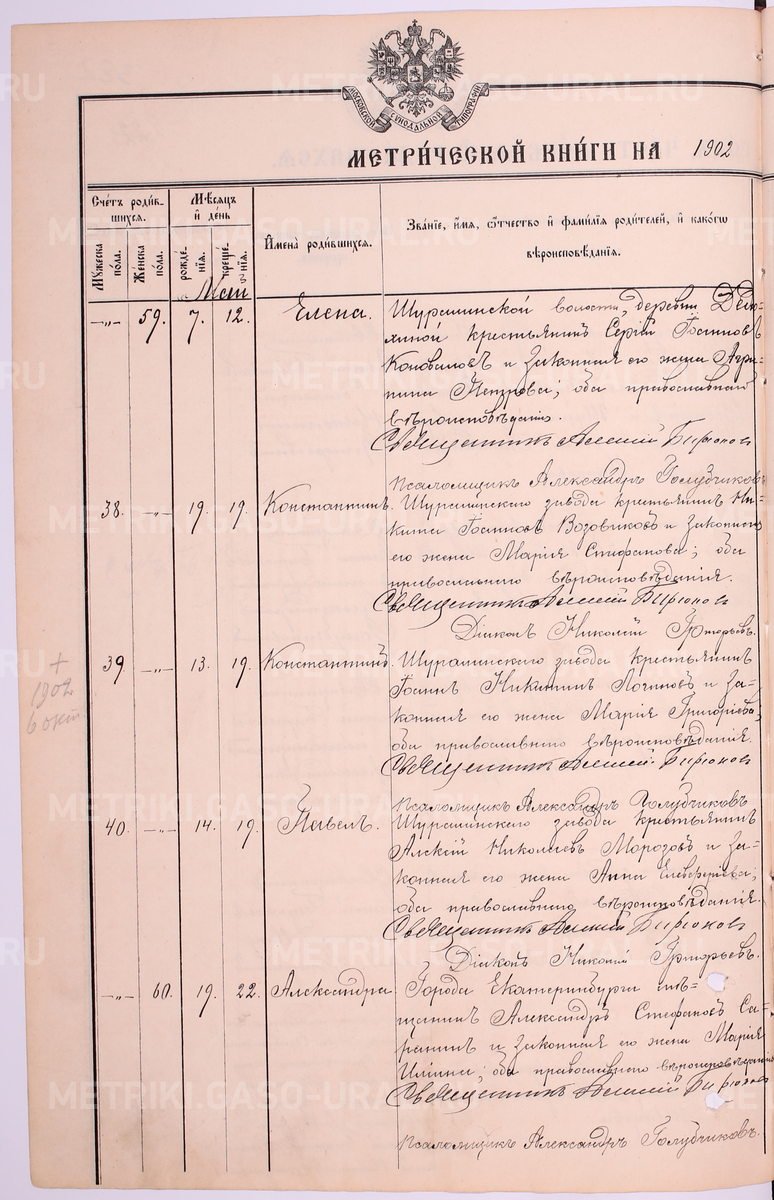 МОСКОВСКОЙ СѴНОДАЛЬНОЙ ТИПОГРАФІИ
МЕТРИ́ЧЕСКОЙ КНИ́ГИ НА 1902
Сче́тъ роди́в-
шихся.
Мѣ́сяцъ
и҆ де́нь
И҆мена̀ роди́вшихся.
Зва́нїе, и҆́мѧ, ѻ҆́тчество и҆ фамѝлїѧ роди́телей, и҆ како́гѡ
вѣроисповѣ́данїѧ.
Мꙋ́жеска по́ла.
Же́нска по́ла.
рожде́нїѧ.
креще́нїѧ.
Май
—„— 59. 7. 12. Елена.
Шуралинской волости, деревни
крестьянинъ Сергій Іоанновъ
Коноваловъ и законная его жена Агри-
пина Петрова; оба православнаго
вѣроисповѣданія.
Священникъ Алексій Бирюковъ
Псаломщикъ Александръ Голубчиковъ
38. —„— 19. 19. Константинъ.
Шуралинскаго завода крестьянинъ Ни-
кита Іоанновъ Возовиковъ и законная
его жена Марія Стефанова; оба
православнаго вѣроисповѣданія.
Священникъ Алексій Бирюковъ
Діаконъ Николай Григорьевъ.
39 —„— 13. 19. Константинъ.
Шуралинскаго завода крестьянинъ
Іоаннъ Никитинъ Логиновъ и за-
конная его жена Марія Григоріева;
оба православнаго вѣроисповѣданія.
Священникъ Алексій Бирюковъ
Псаломщикъ Александръ Голубчиковъ
+
1902
6 окт.
40. —„— 14. 19. Павелъ.
Шуралинскаго завода крестьянинъ
Алексій Николаевъ Морозовъ и за-
конная его жена Анна Елевферіева;
оба православнаго вѣроисповѣданія.
Священникъ Алексій Бирюковъ
Діаконъ Николай Григорьевъ.
—„— 60. 19. 22. Александра
Города Екатеринбурга мѣ-
щанинъ Александръ Стефановъ Са-
ранинъ и законная его жена Марія
Иліина; оба православнаго вѣроисповѣданія
Священникъ Алексій Бирюковъ
Псаломщикъ Александръ Голубчиковъ.
METRIKI.GASO-URAL.RU